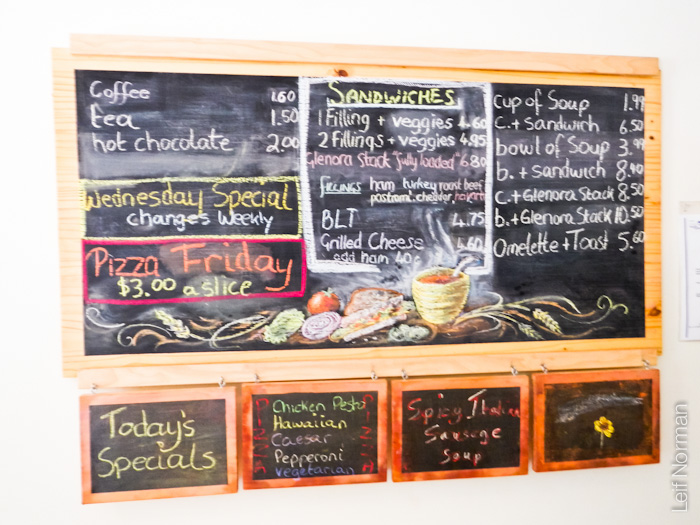 Coffee 1.60
tea 1.50
hot chocolate 2.00
Wednesday Special
changes weekly
Pizza Friday
$3.00 a slice
SANDWICHES
1 Filling + veggies 4.60
2 Fillings + veggies 4.95
Glenora Stack "fully loaded" 6.80
FILLINGS ham turkey roast beef
pastrami cheddar havarti
BLT 4.75
Grilled Cheese 4.60
add ham 40¢
cup of Soup 1.99
c. + sandwich 6.50
bowl of Soup 3.99
b. + sandwich 8.40
c. + Glenora Stack 8.50
b. + Glenora Stack 10.50
Omelette + Toast 5.60
Today's
Specials
Chicken Pesto
Hawaiian
Caesar
Pepperoni
Vegetarian
PIZZA
Spicy Italian
Sausage
Soup
Leif Norman